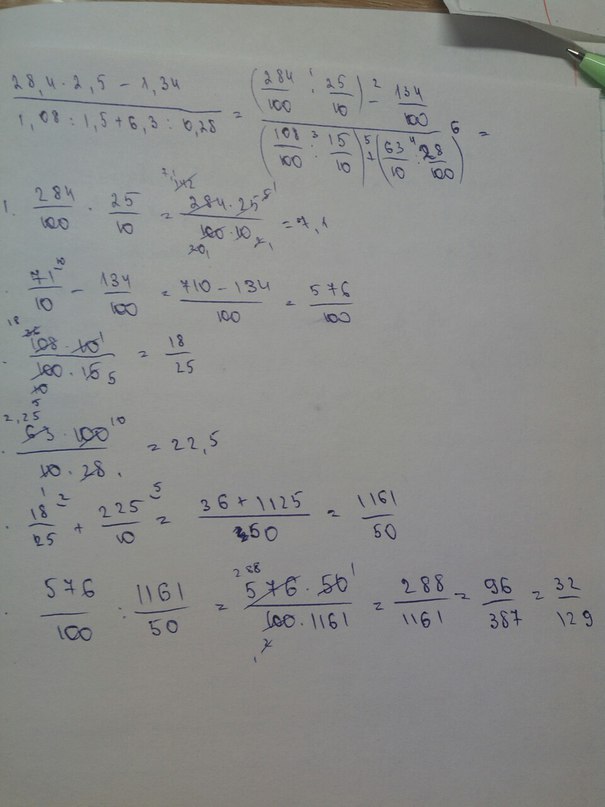 (28,4 · 2,5 − 1,34) / (1,08 : 1,5 + 6,3 : 0,28) = ((284/100 : 25/10) − 134/100) / ((108/100 : 15/10) + (63/10 : 28/100)) =
1. 284/100 · 25/10 = 284 · 25 / 100 · 10 = 7,1
71/10 − 134/100 = 710 − 134 / 100 = 576/100
108 · 10 / 100 · 15 = 18/25
63 · 100 / 10 · 28 = 22,5
18/25 + 225/10 = 36 + 1125 / 50 = 1161/50
576/100 : 1161/50 = 576 · 50 / 100 · 1161 = 288/1161 = 96/387 = 32/129